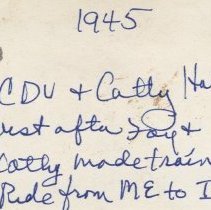 1945
CDV + Cathy Ha
after Foy +
Cathy made train
Ride from ME to I